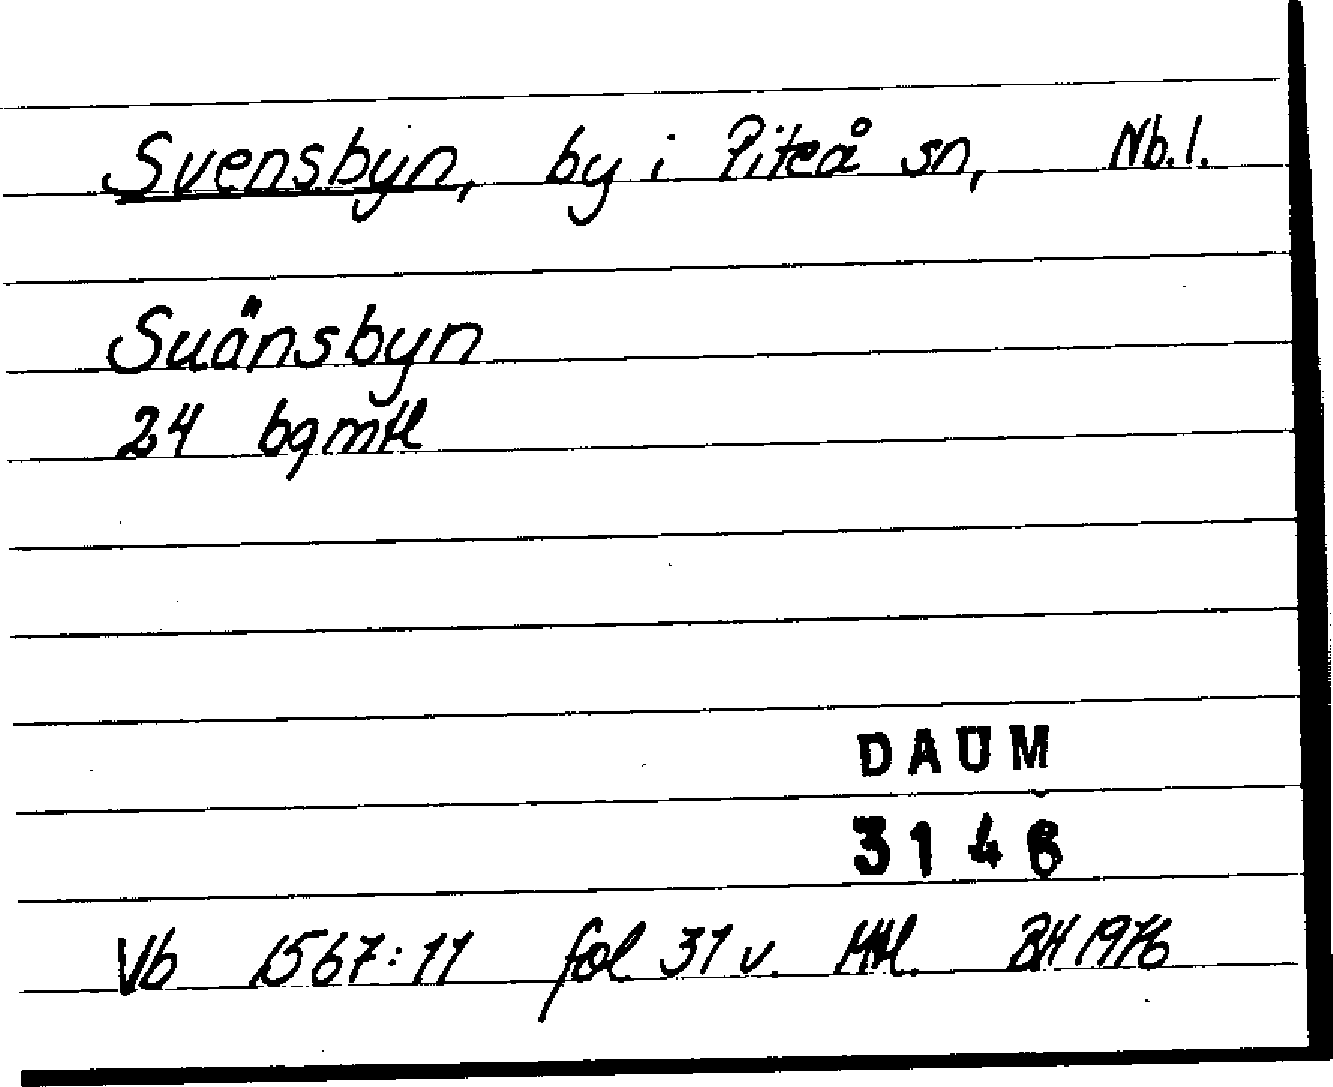 Svensbyn, by i Piteå sn, Nb.l.
Suänsbyn
24 bgmtl
DAUM
3146
Vb 1567:11 fol 31 v. Mtl. BH 1976